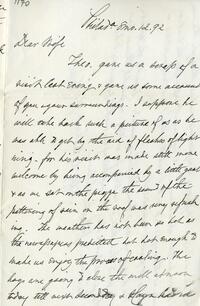 1170
Philada 8 mo. 12. 92
Dear Wife
Theo. gave us a scrap of a
visit last eveng & gave us some account
of you & your surroundings. I suppose he
will take back such a picture of us as he
was able to get by the aid of flashes of light
ning. for his visit was made still more
welcome by being accompanied by a little gust
& as we sat on the porch the sound of the
pattering of rain on the roof was very refresh
ing. The weather has not been as hot as
the newspapers predicted but hot enough to
make us enjoy the process of cooling. The
boys are going to close the mill at noon
today till next second day &